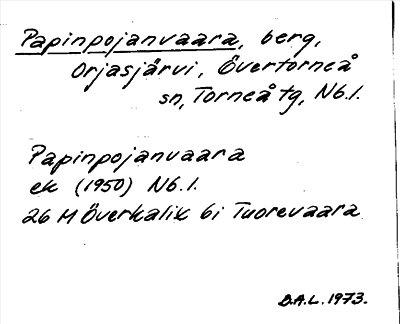 Papinpojanvaara, berg,
Orjasjärvi, Övertorneå
sn, Torneå tg, Nb.l.
Papinpojanvaara
ek (1950) Nb.l.
26 M Överkalix 6i Tuorevaara
D.A.L. 1973.